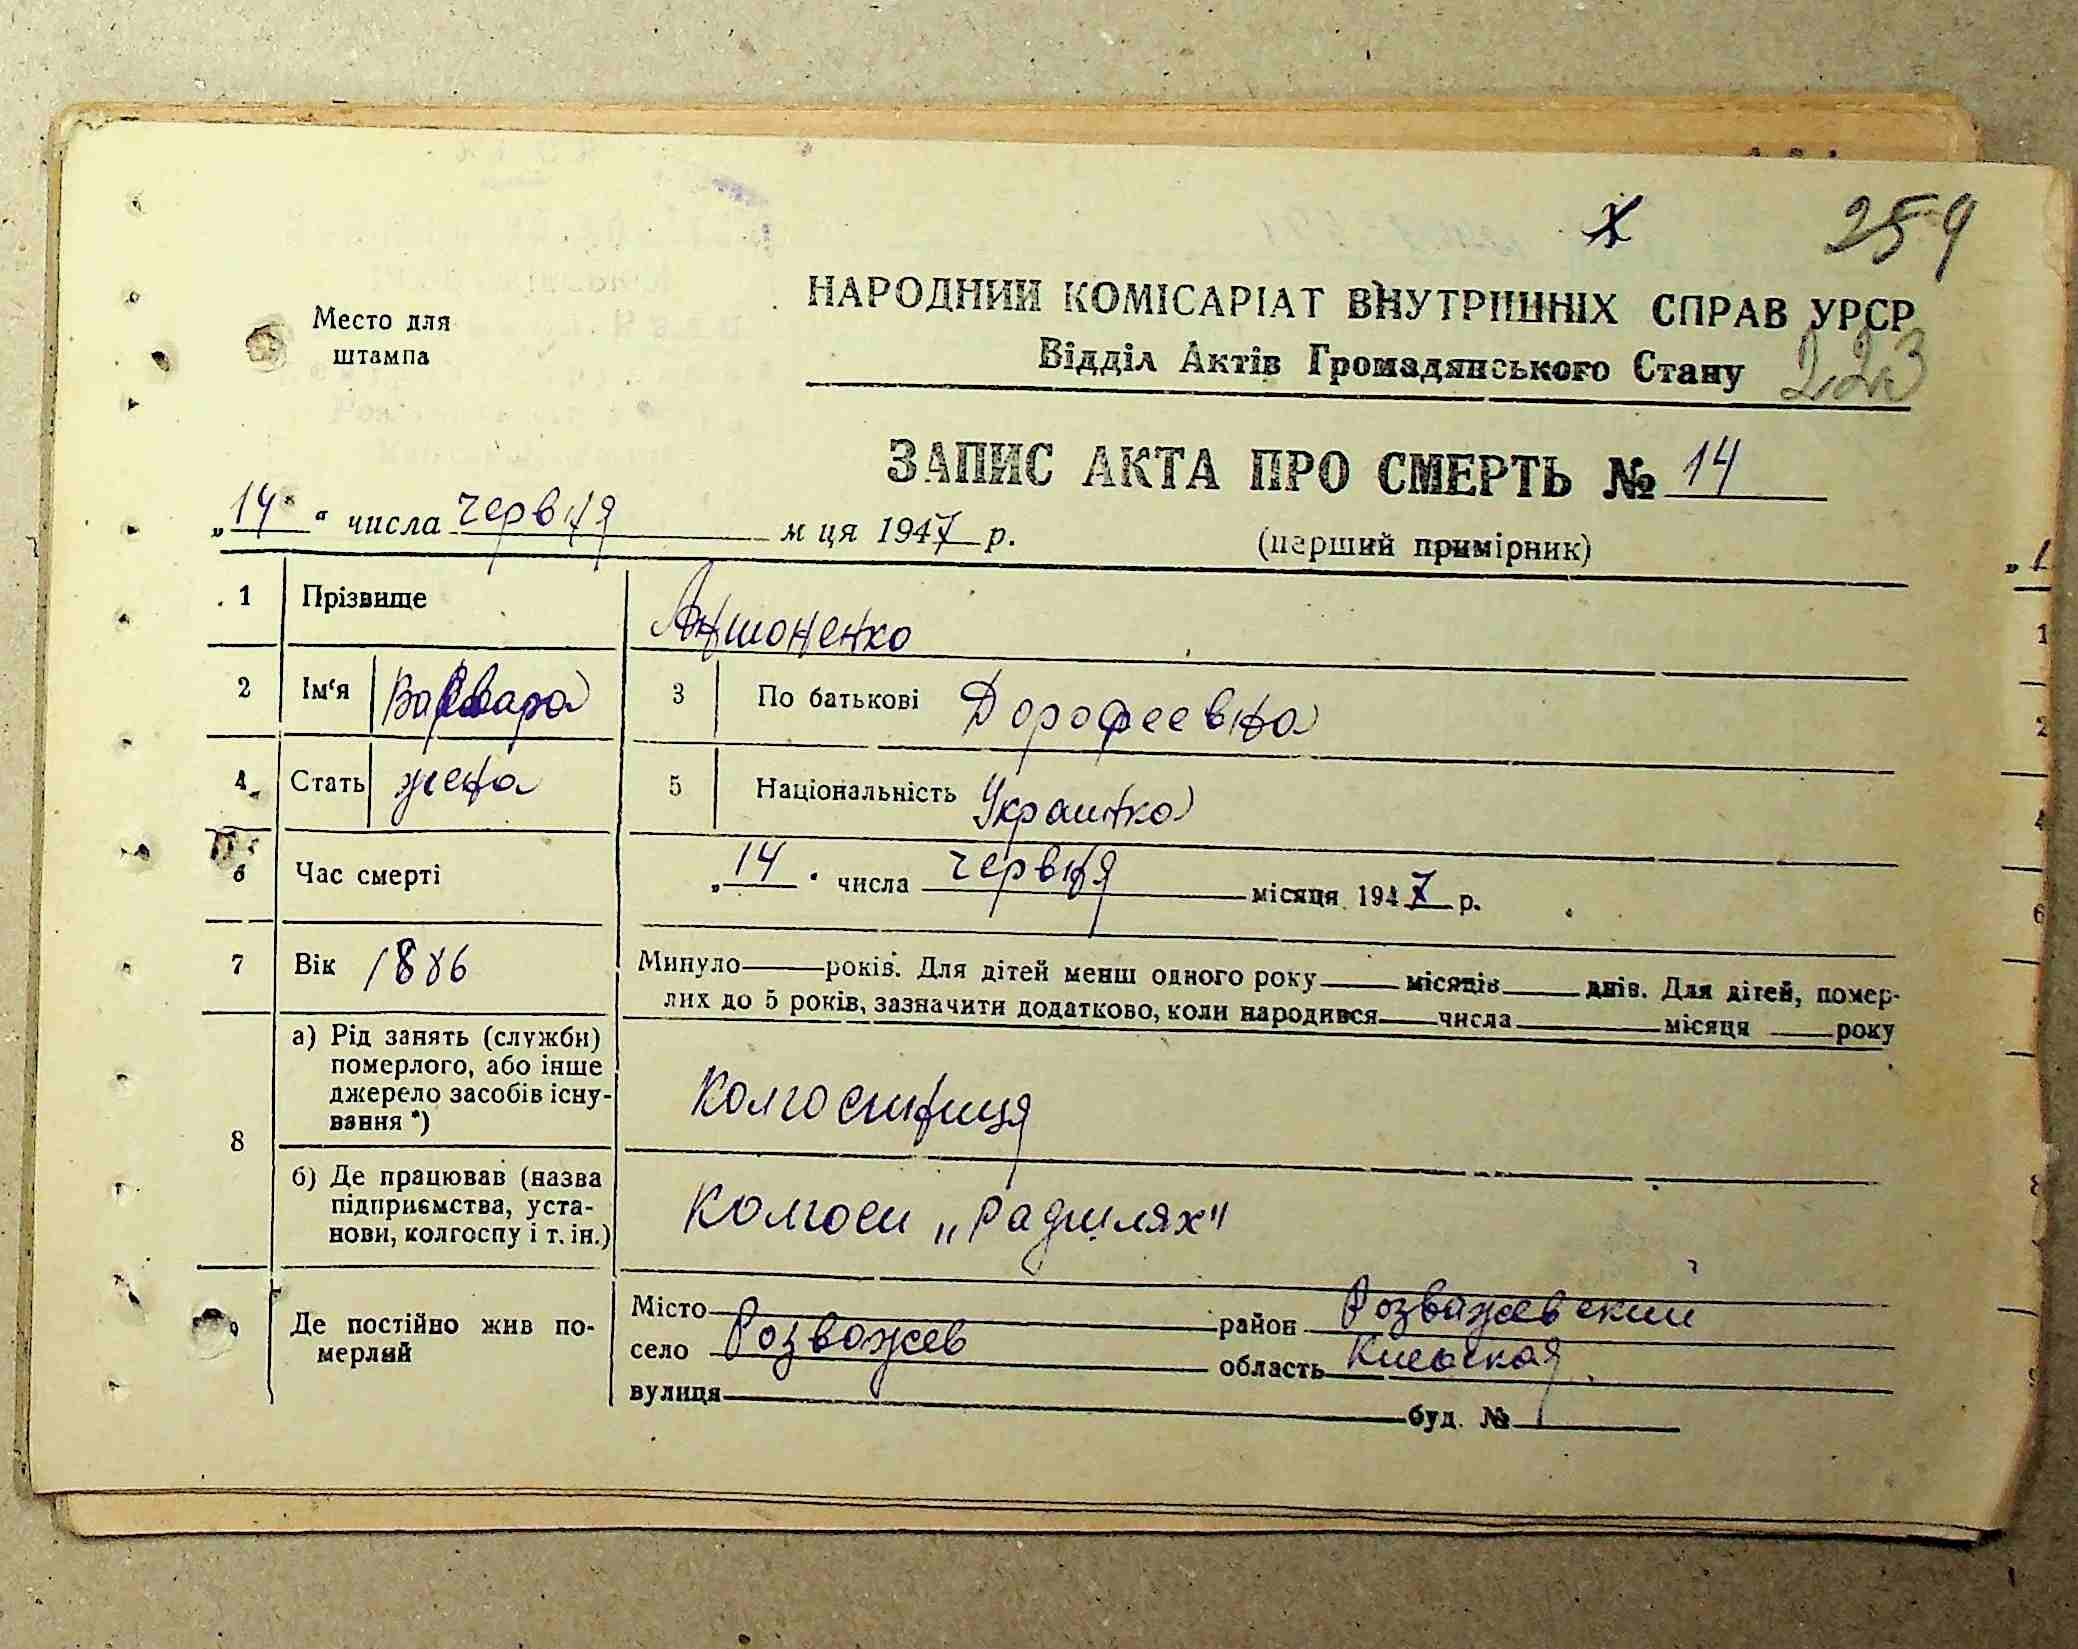 х 259
НАРОДНИЙ КОМІСАРІАТ ВНУТРІШНІХ СПРАВ УРСР
Місто для
Відділ Актів Громадянського Стану 223
штампа
ЗАПИС АКТА ПРО СМЕРТЬ № 14
„14“ числа червня м ця 1947 р. (перший примірник)
1 Прізвище Антоненко
2 Ім'я Варвара 3 По батькові Дорофеевна
4 Стать жена 5 Національність Украинка
6 Час смерті „14“ числа червня місяця 1947 р.
7 Вік 1886 Минуло років. Для дітей менш одного року місяців днів. Для дітей, помер-
лих до 5 років, зазначити додатково, коли народився числа місяця року
8 а) Рід занять (служби)
померлого, або інше
джерело засобів існу-
вання *)
Колгоспниця
б) Де працював (назва
підприємства, уста-
нови, колгоспу і т. ін.)
Колгосп „Радшлях"
9 Де постійно жив по-
мерлий
Місто район Розважевский
село Розважев область Киевская
вулиця буд. №